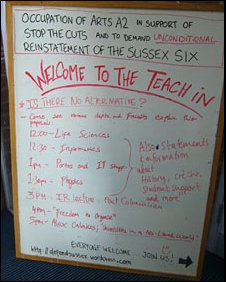 OCCUPATION OF ARTS A2 IN SUPPORT OF
STOP THE CUTS AND TO DEMAND UNCONDITIONAL
REINSTATEMENT OF THE SUSSEX SIX
WELCOME TO THE TEACH IN
* IS THERE NO ALTERNATIVE?
- Come see various depts and Faculty explain their
proposals:
12:00 - Life Sciences
12:30 - Informatics
1pm - and IT
1:30pm - Physics
3pm - IR lecture: Post Colonialism
4pm - "Freedom to Organise"
5pm - Alex Callinicos; in a Neo-liberal World"
Also statements
& information
about
History,
Student Support
and more
EVERYONE WELCOME... JOIN US!
http://defendsussex.wordpress.com